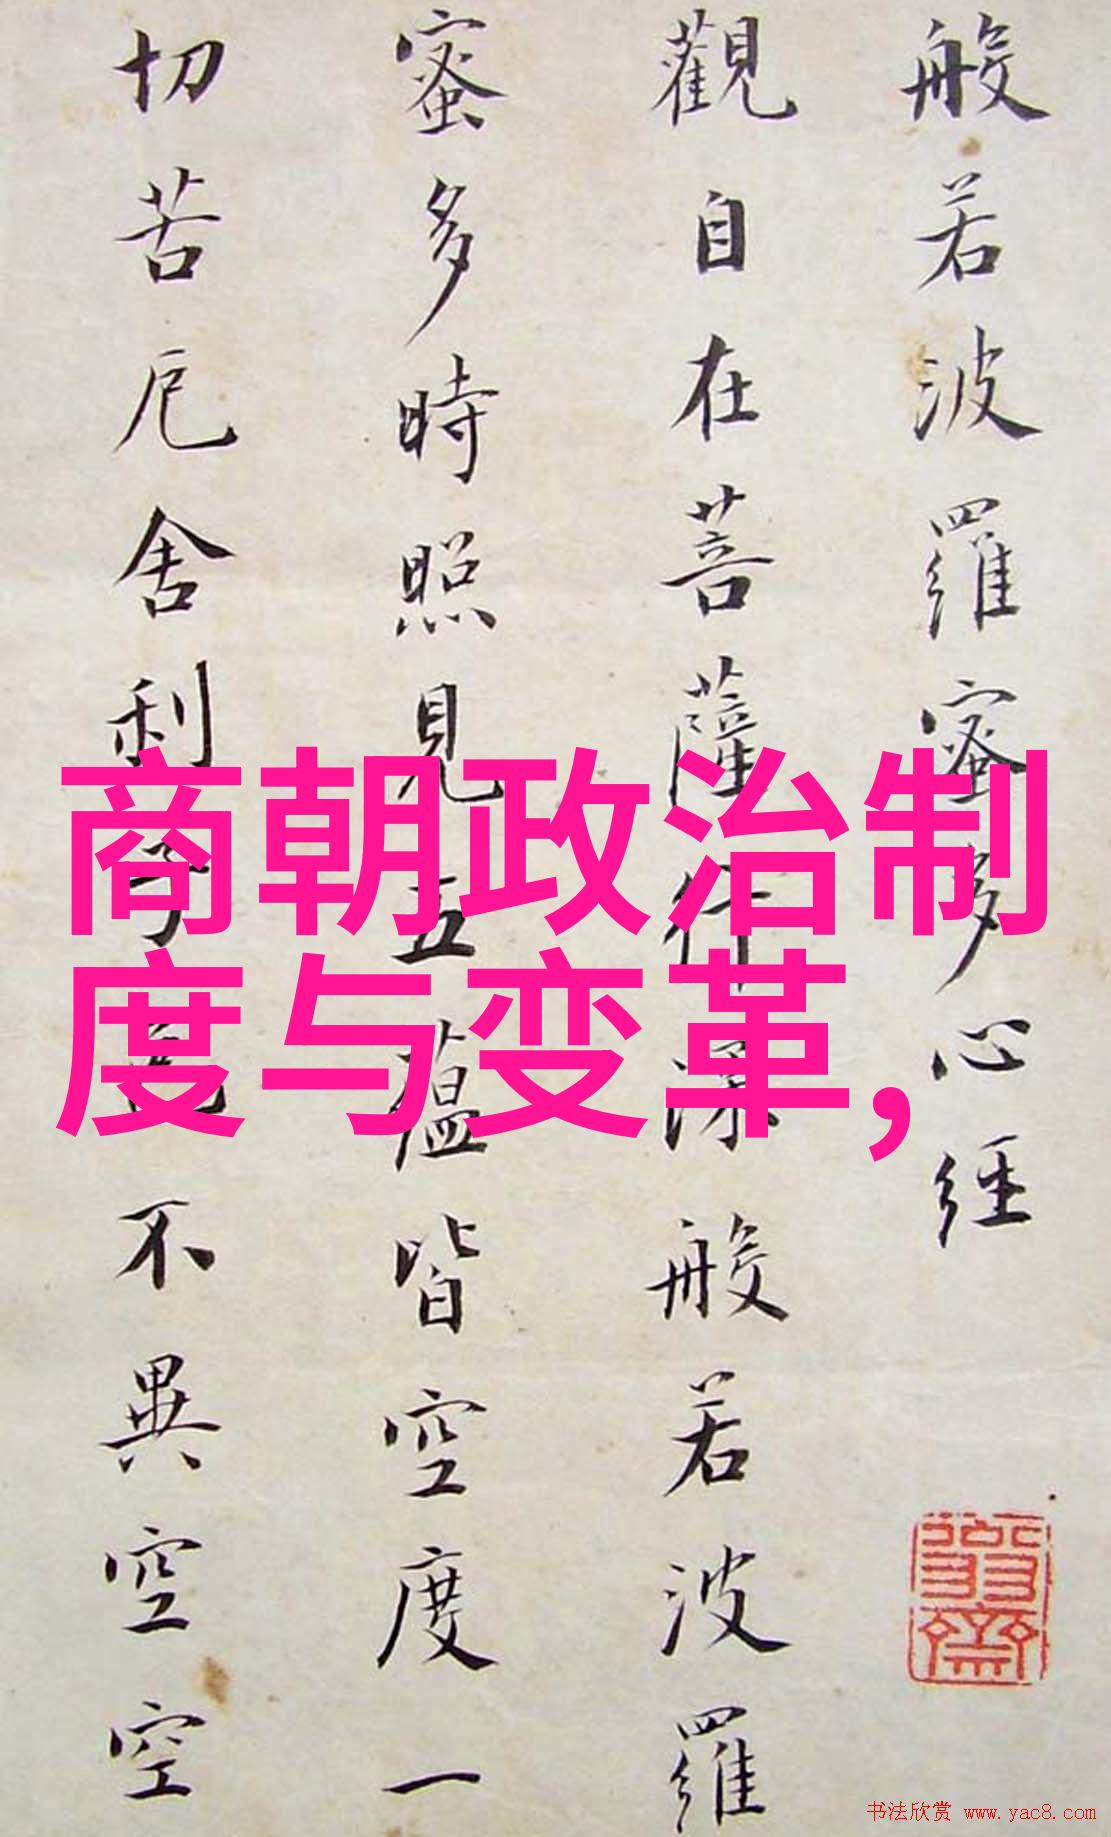 般若波羅蜜多心經
觀自在菩薩行深般若波羅
蜜多時照見五蘊皆空度一
切苦厄舍利子色不異空空
商朝政治制
度与变革,
书法欣赏 www.yac8.com